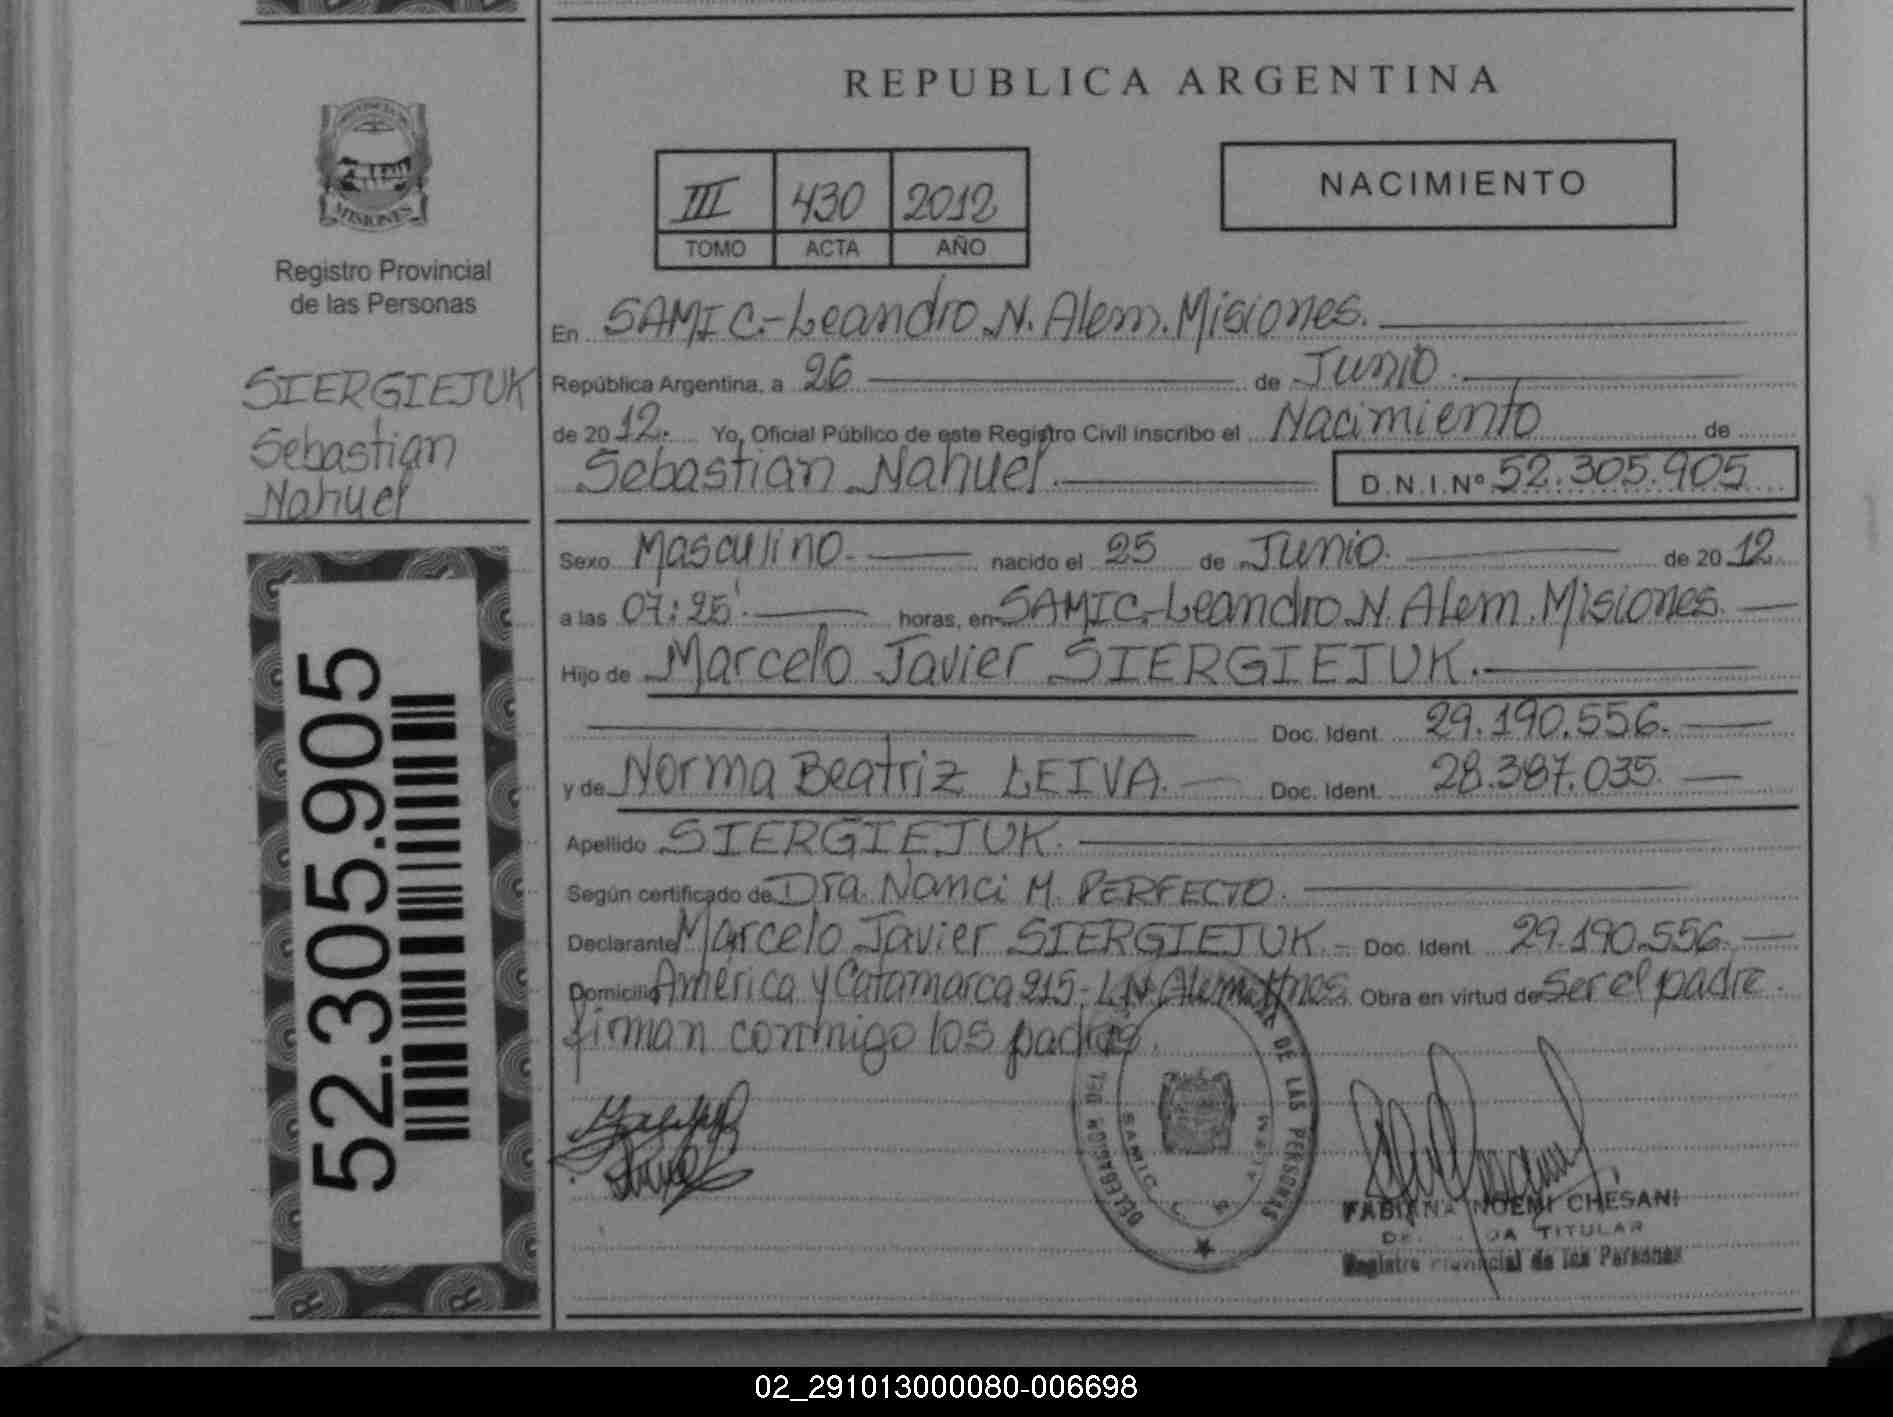 REPUBLICA ARGENTINA
III 430 2012
TOMO ACTA AÑO
NACIMIENTO
MISIONES
Registro Provincial
de las Personas
SIERGIEJUK
Sebastian
Nahuel
52.305.905
En SAMIC.-Leandro N. Alem. Misiones.
República Argentina, a 26 de Junio.
de 2012. Yo, Oficial Público de este Registro Civil inscribo el Nacimiento de
Sebastian Nahuel. D.N.I.Nº 52.305.905
Sexo Masculino. nacido el 25 de Junio. de 2012.
a las 07:25'. horas, en SAMIC.-Leandro N. Alem. Misiones.
Hijo de Marcelo Javier SIERGIEJUK.
Doc. Ident. 29.190.556.
y de Norma Beatriz LEIVA. Doc. Ident. 28.387.035.
Apellido SIERGIEJUK.
Según certificado de Dra. Nanci M. PERFECTO.
Declarante Marcelo Javier SIERGIEJUK.- Doc. Ident. 29.190.556.
Domicilio América y Catamarca 215-L.N.Alem.Mnes. Obra en virtud de Ser el padre.
firman conmigo los padres.
DELEGACION DE LAS PERSONAS
SAMIC L. N. ALEM
FABIANA NOEMI CHESANI
TITULAR
Registro Provincial de las Personas
02_291013000080-006698